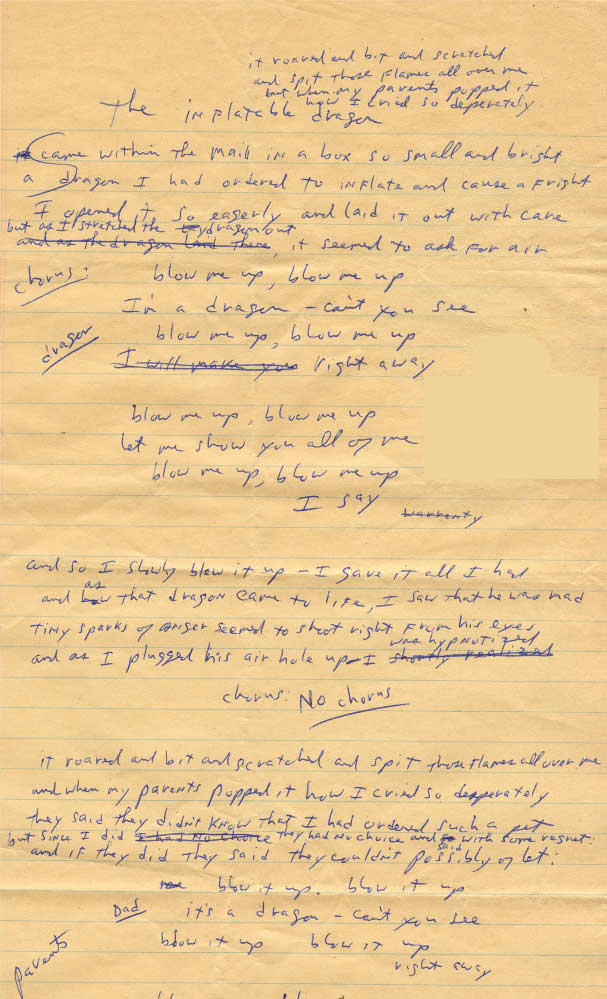 it roared and bit and scratched
and spit those flames all over me
but when my parents popped it
how I cried so deperately
the inflatable dragon
it came within the mail in a box so small and bright
a dragon I had ordered to inflate and cause a fright
I opened it so eagerly and laid it out with care
but as I stretched the dragon out
and as the dragon laid there, it seemed to ask for air
chorus: blow me up, blow me up
I'm a dragon - can't you see
blow me up, blow me up
dragon
I will make you right away
blow me up, blow me up
let me show you all of me
blow me up, blow me up
I say
warrenty
and so I slowly blew it up - I gave it all I had
as
and how that dragon came to life, I saw that he was mad
tiny sparks of anger seemed to shoot right from his eyes
was hypnotized
and as I plugged his air hole up - I shortly realized
chorus: No chorus
it roared and bit and scratched and spit those flames all over me
and when my parents popped it how I cried so desperately
they said they didn't know that I had ordered such a pet
but since I did I had no choice they had no choice and so said with some regret:
and if they did they said they couldn't possibly of let:
me blow it up. blow it up
Dad it's a dragon - can't you see
blow it up blow it up
right away
parents